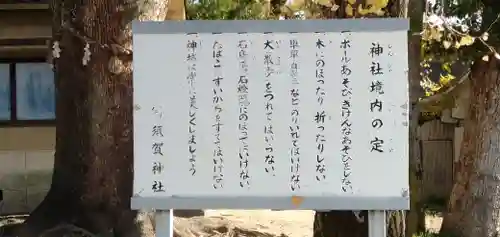 神社境内の定
一 ボールあそびきけんなあそびをしない
一 木にのぼったり折ったりしない
一 車 などのりいれてはいけない
一 犬 をつれてはいらない
一 石 石燈 にのぼってはいけない
一 たばこ すいがらをすててはいけない
一 神域 美しくしましょう
須賀神社